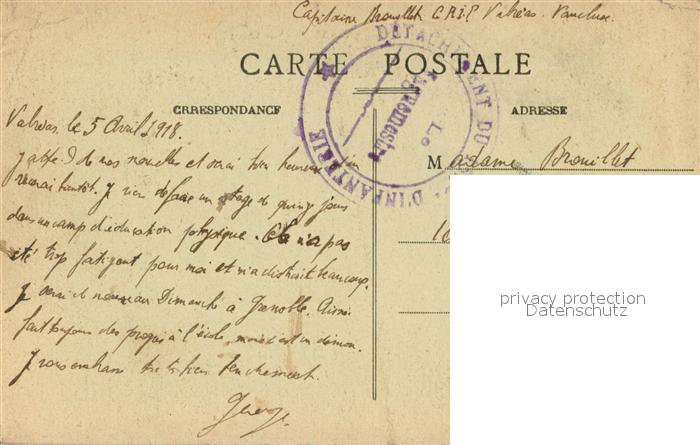 Capitaine Brouillet C.R.I.P Valréas. Vaucluse.
DÉTACHEMENT DU D'INFANTERIE
Le Vaguemestre
CARTE POSTALE
CRRESPONDANCE
ADRESSE
Valréas, le 5 Avril 1918.
de vos nouvelles et serai bien heureux
bientôt. Je viens de faire un stage de quinze jours
dans un camp d'éducation physique. Cela n'a pas
été trop fatigant pour moi et m'a distrait beaucoup.
Je serai de nouveau Dimanche à Grenoble.
fait toujours des progrès à l'école, mais c'est un démon.
Je vous embrasse très bien tendrement.
George
Madame Brouillet
10
privacy protection
Datenschutz